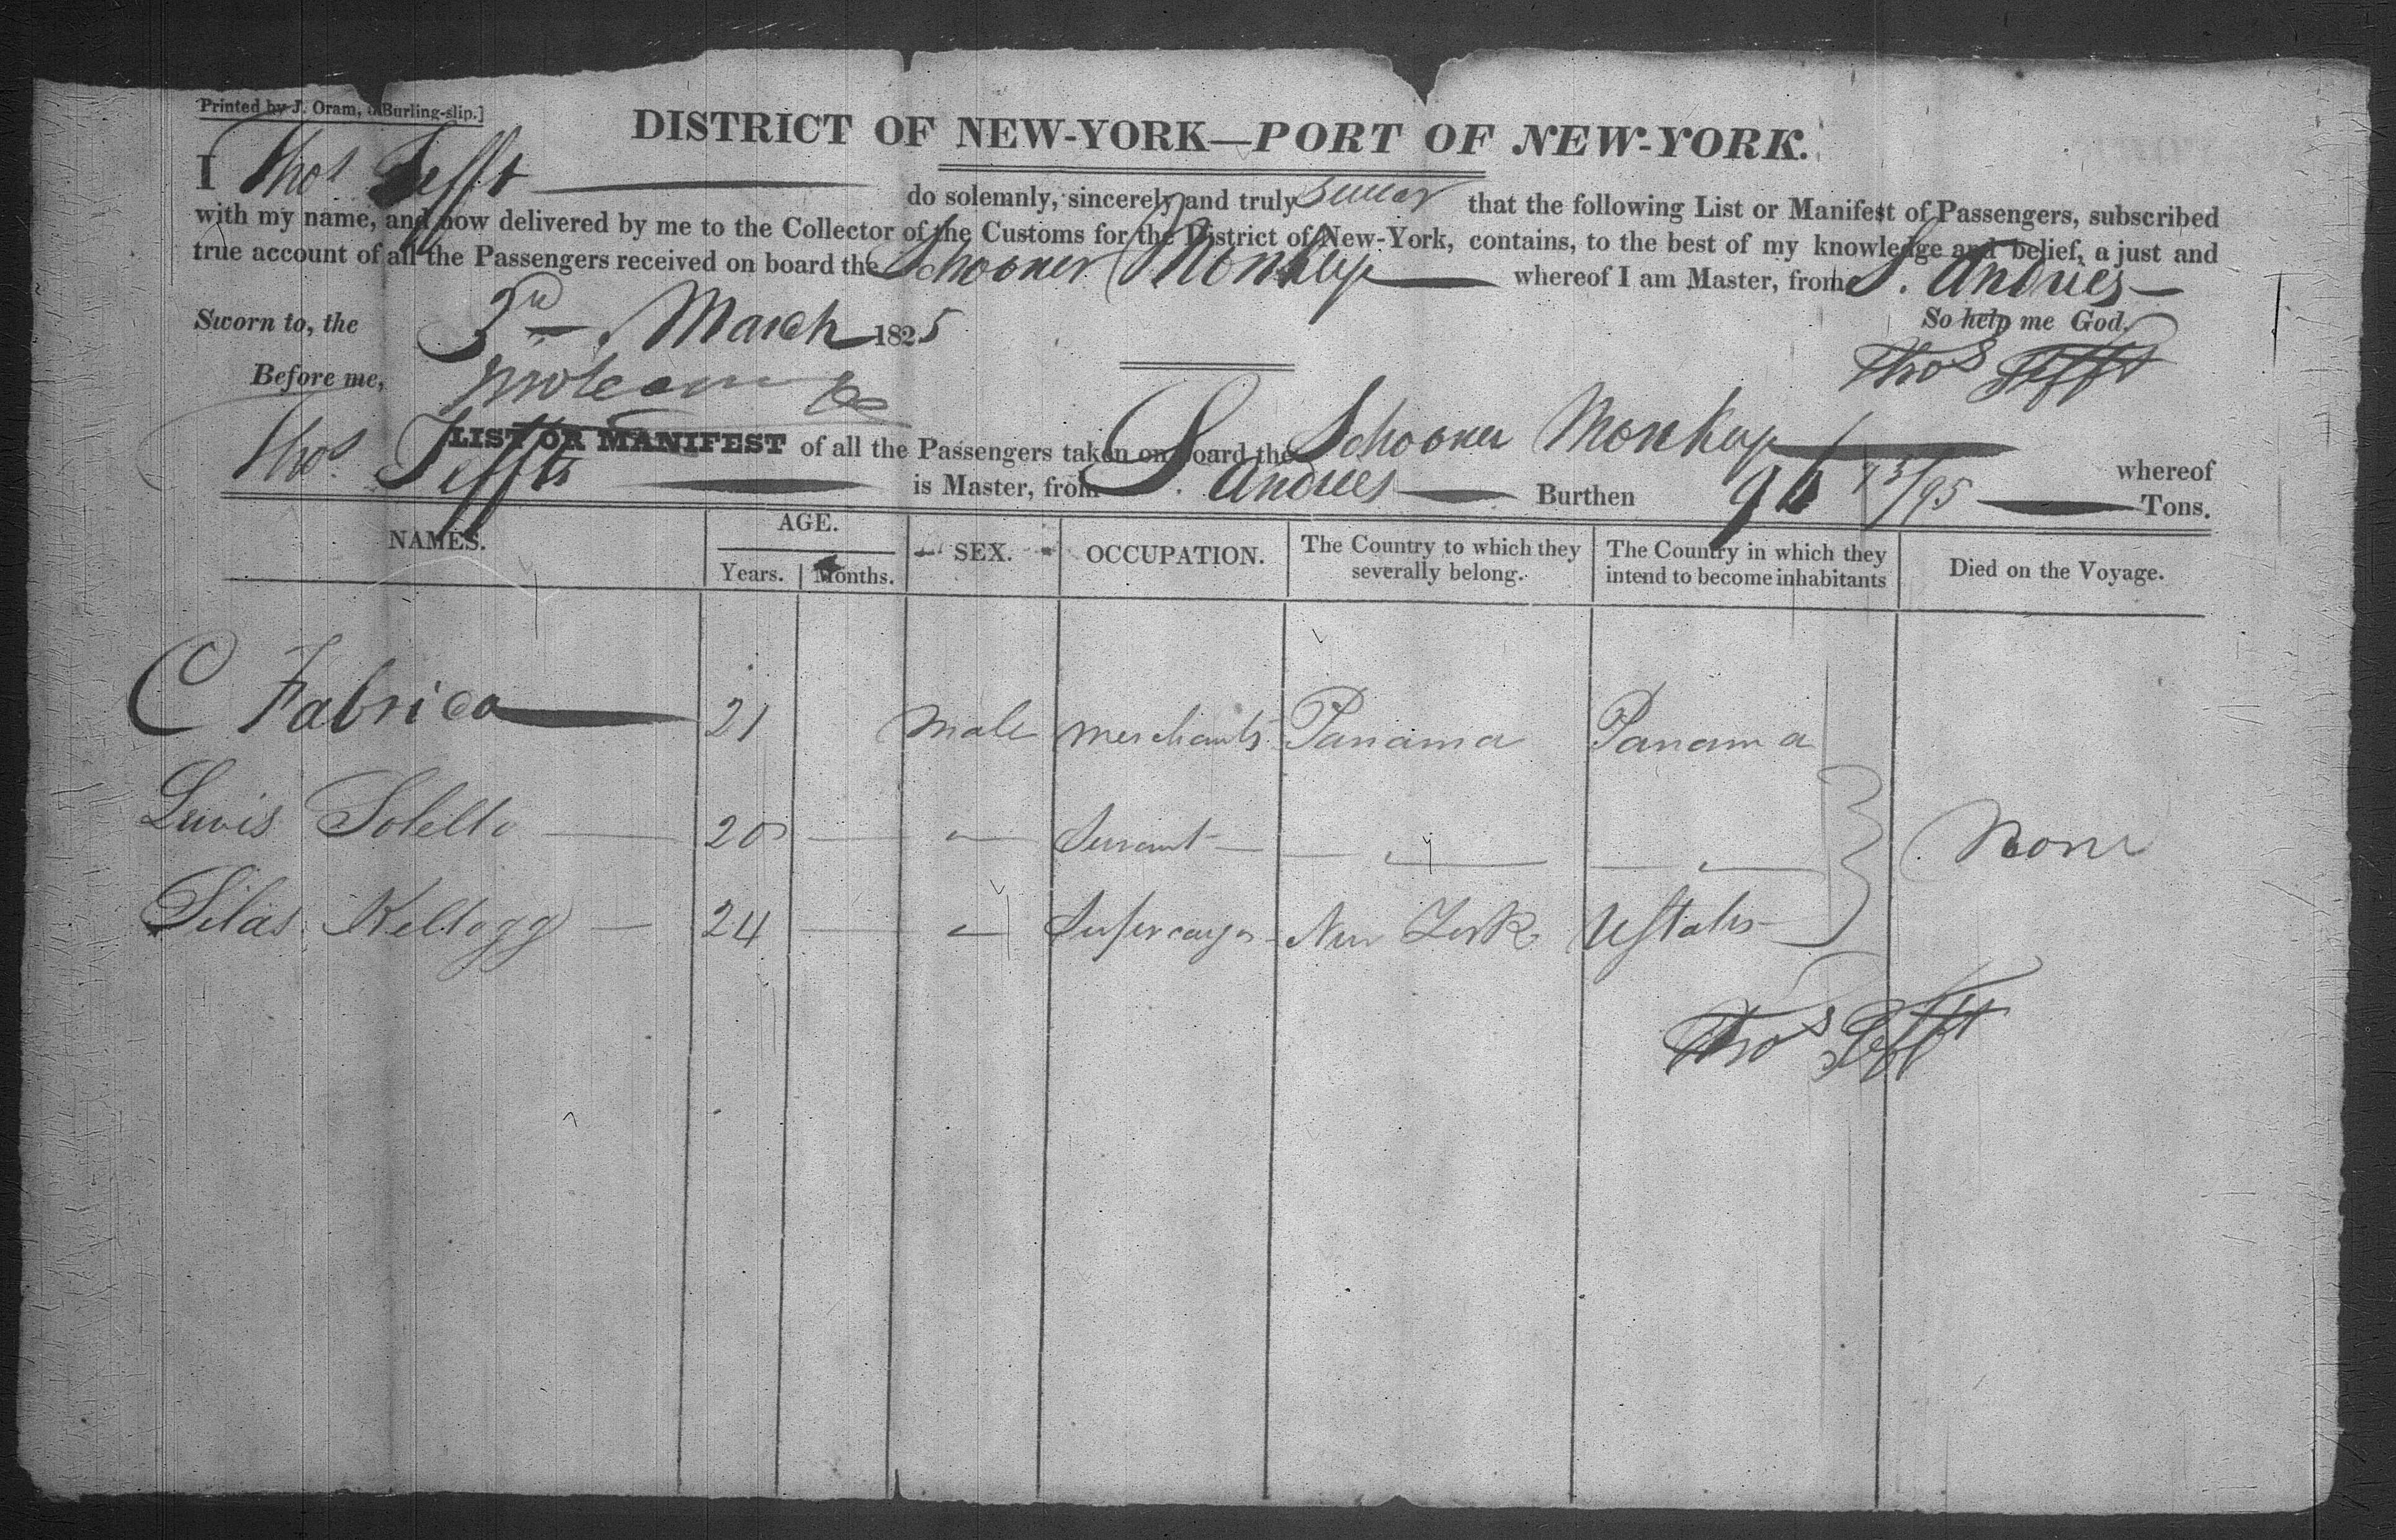 Printed by J. Oram, Burling-slip.]
DISTRICT OF NEW-YORK—PORT OF NEW-YORK.
I Thos Tefft do solemnly, sincerely and truly swear that the following List or Manifest of Passengers, subscribed
with my name, and now delivered by me to the Collector of the Customs for the District of New-York, contains, to the best of my knowledge and belief, a just and
true account of all the Passengers received on board the Schooner Monkey whereof I am Master, from S. Andres
Sworn to, the 3rd March 1825 So help me God.
Before me, Thos Tefft
LIST OR MANIFEST of all the Passengers taken on board the Schooner Monkey whereof
Thos Tefft is Master, from S. Andres Burthen 96 Tons.
NAMES. AGE. SEX. OCCUPATION. The Country to which they severally belong. The Country in which they intend to become inhabitants Died on the Voyage.
Years. Months.
C Fabrica 21 male merchants Panama Panama
Luvis Solello 20 " Servant " " None
Silas Kellogg 24 " Supercargo New York UStates
Thos Tefft